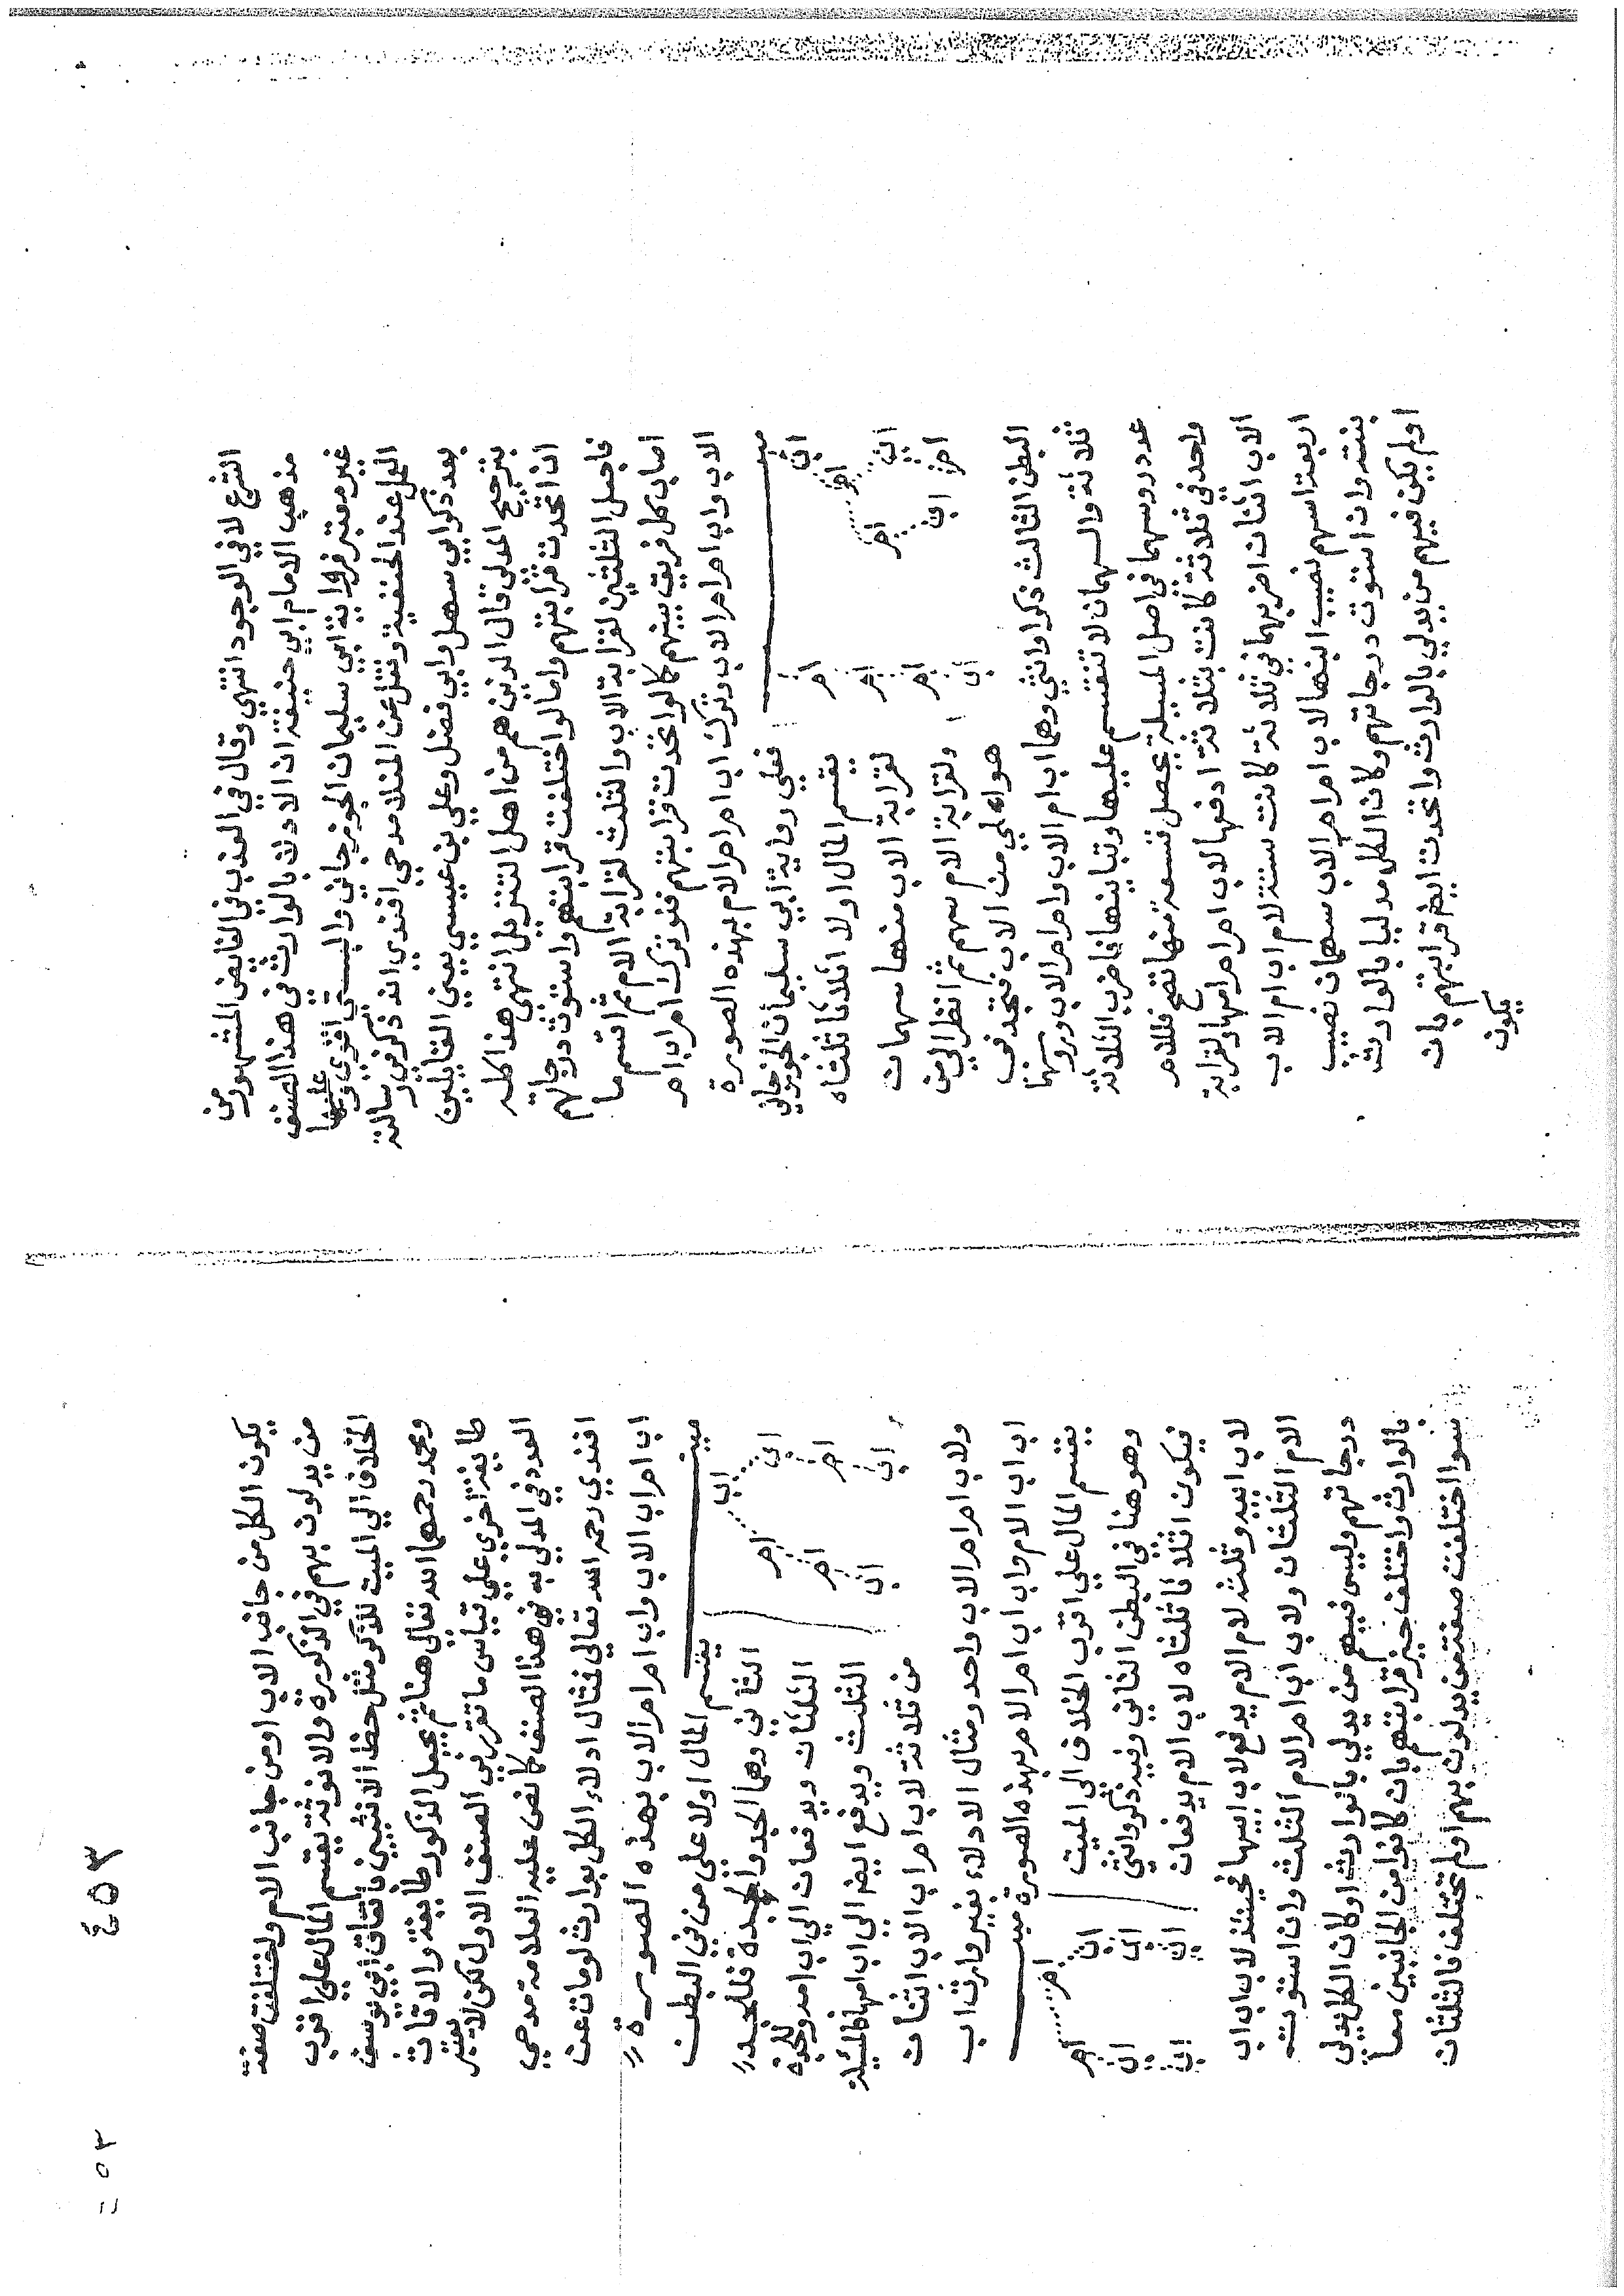 الشرع لا في الوجود انتهي وقال في العذب الفايض المشهور من
مذهب الامام ابي حنيفة ان الادلاء بالوارث في هذا الصنف
غير معتبر فرواية ابي سليمان الجوزجاني والبستي اقوي وعليها
العمل عند الحنفية ونقل عن المنلا مدحي افندي انه ذكر في رسالته
بعد ذكر ابي سهل وابي فضل وعلي بن عيسي يعني القايلين
بترجيح المدلي قال الذين هم من اهل التنزيل انتهي هذا كله
ان اتحدت قرابتهم واما لو اختلفت قرابتهم واستوت درجاتهم
فاجعل الثلثين لقرابة الاب والثلث لقرابة الام ثم اقسم ما
اصاب كل فريق بينهم كما لو اتحدت قرابتهم فلو ترك ام اب ام
الاب واب ام ام الاب وترك اب ام ام الام بهذه الصورة
ميـت
ففي رواية ابي سليمان الجوزجاني
يقسم المال اولا اثلاثا ثلثاه
لقرابة الاب منها سهمان
ولقرابة الام سهم ثم انظر الي من
هو ادلي من الاب فتجد في
اب ام ام اب
اب ام ام اب
ام ام ام اب
البطن الثالث ذكرا وانثي وهما اب ام الاب وام ام الاب وروسهما
ثلاثة والسهمان لا تنقسم عليها وتباينها فاضرب الثلاثة
عدد روسهما في اصل المسيلة يحصل تسعة منها تصح فللام
واحد في ثلاثة كانت بثلاثة ادفعها لاب ام ام امها ولقرابة
الاب اثنان اضربهما في ثلاثة كانت ستة لام اب ام الاب
اربعة اسهم نصيب ابنها لاب ام ام الاب سهمان نصيب
بنته وان استوت درجاتهم وكان الكل مدليا بالوارث
اولم يكن فيهم من يدلي بالوارث واتحدت ايضا قرابتهم بان
يكون
٤٥٣
٤٥٣
يكون الكل من جانب الاب او من جانب الام واختلفت صفة
من يدلون بهم في الذكورة والانوثة يقسم المال علي اقرب
الخلاف الي الميت للذكر مثل حظ الانثيين باتفاق ابي يوسف
ومحمد رحمهما الله تعالي هنا ثم يجعل الذكور طايفة والاناث
طايفة اخري علي قياس ما تقرر في الصنف الاول لكن لا يعتبر
العدد في المدلي به في هذا الصنف كما نص عليه العلامة مدحي
افندي رحمه الله تعالي فمثال ادلاء الكل بوارث لو مات عن
اب ام اب الاب واب ام ام الاب بهذه الصورة
ميـت
يقسم المال اولا علي من في البطن
الثاني وهما الجد والجدة فللجد
الثلثان ويدفعان الي اب امه وللجدة
الثلث ويدفع ايضا الي اب امها فالمسيلة
اب اب ام اب
اب ام ام اب
من ثلاثة لاب ام اب الاب اثنان
ولاب ام ام الاب واحد ومثال الادلاء بغير وارث اب
اب اب الام واب اب ام الام بهذه الصورة ميـت
يقسم المال علي اقرب الخلاف الي الميت
وهو هنا في البطن الثاني وفيه ذكر وانثي
فيكون اثلاثا ثلثاه لاب الام يدفعان
ام اب اب اب
ام ام اب اب
لاب ابيه وثلث لام الام يدفع لاب ابيها فحينئذ لاب اب اب
الام الثلثان ولاب اب ام الام الثلث وان استوت
درجاتهم وليس فيهم من يدلي بالوارث او كان الكل يدلي
بالوارث واختلف حيز قرابتهم بان كانوا من الجانبين معا
سوا اختلفت صفة من يدلون بهم اولم تختلف فالثلثان